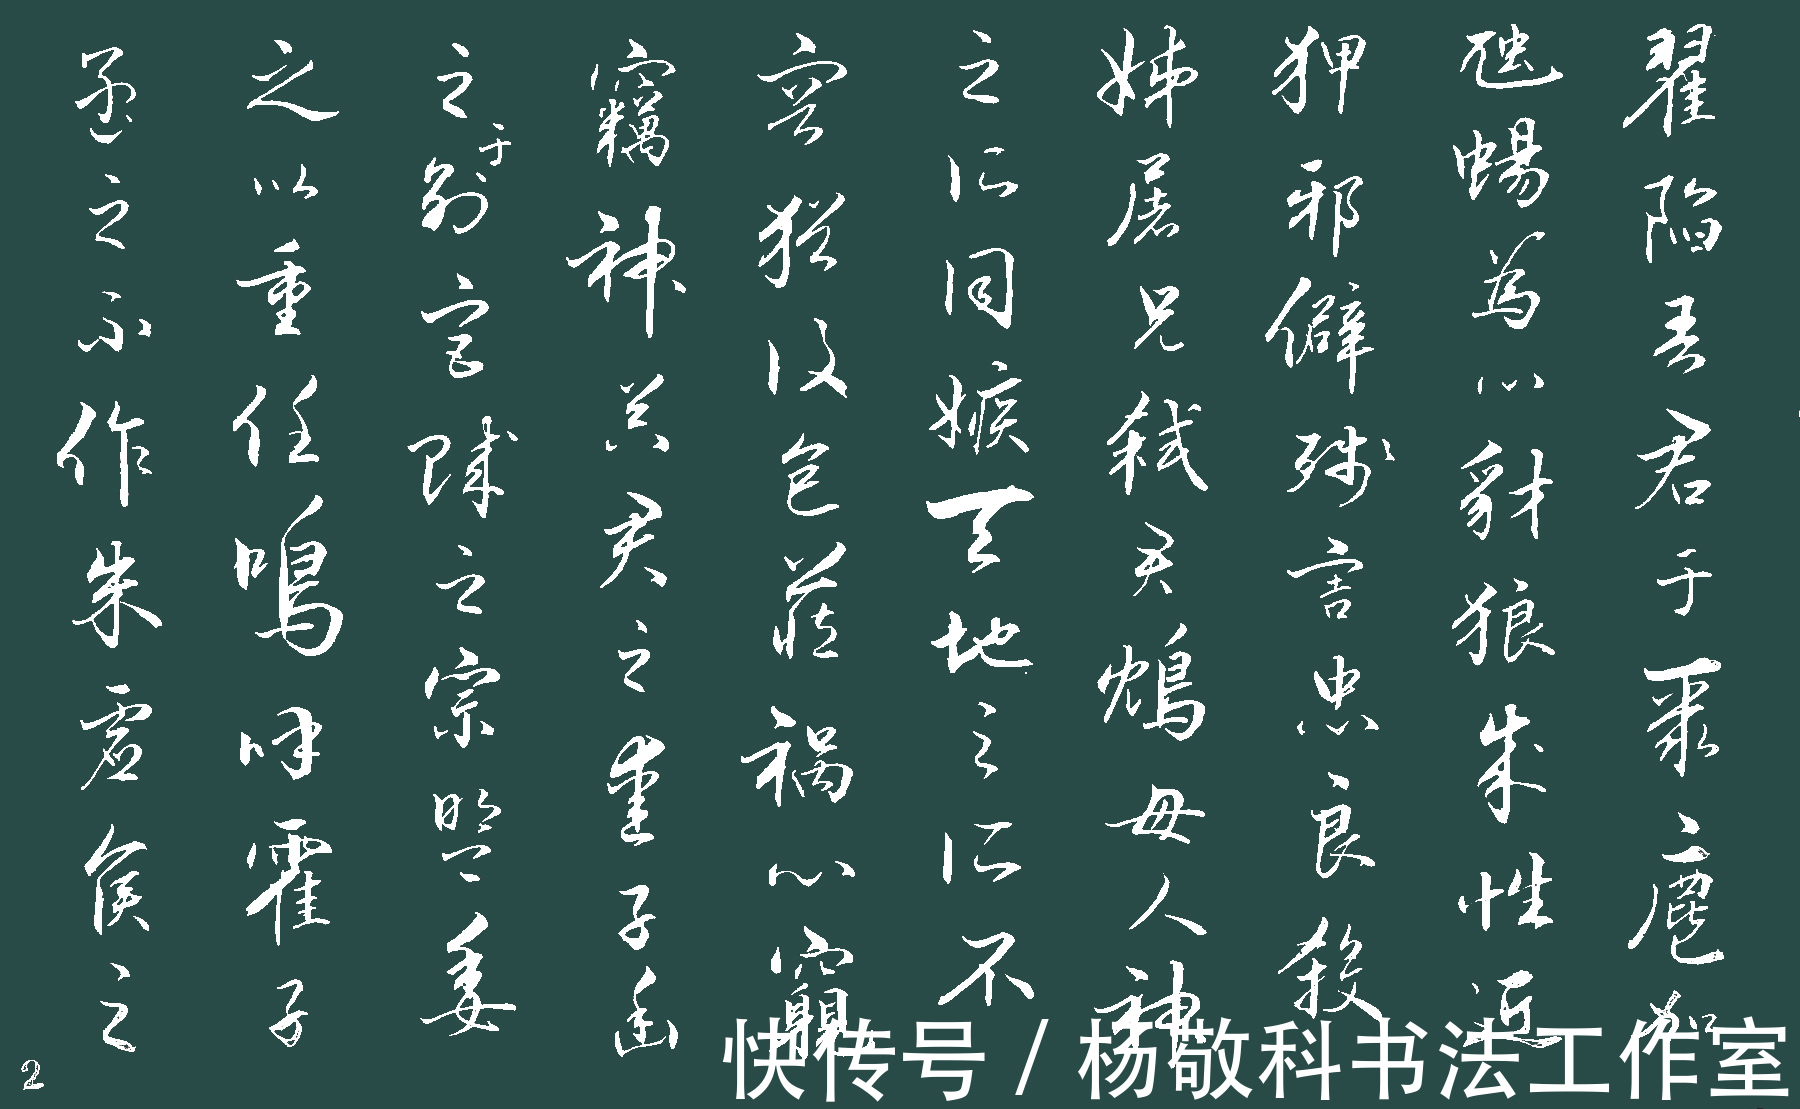 翟陷吾君于聚麀加
虺蜴為心豺狼成性近
狎邪僻殘害忠良殺
姊屠兄弒君鴆母人神
之所同嫉天地之所不
容猶復包藏禍心窺
竊神器君之愛子幽
之于別宮賊之宗盟委
之以重任嗚呼霍子
孟之不作朱虛侯之
2
快传号 / 杨敬科书法工作室